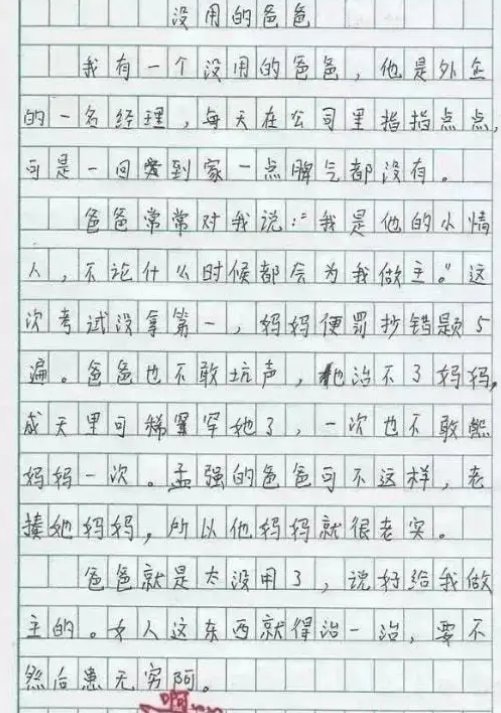 没用的爸爸
我有一个没用的爸爸，他是外企
的一名经理，每天在公司里指指点点，
可是一回到家一点脾气都没有。
爸爸常常对我说："我是他的小情
人，不论什么时候都会为我做主。"这
次考试没拿第一，妈妈便罚抄错题5
遍。爸爸也不敢坑声，他治不了妈妈，
成天里可稀罕她了，一次也不敢熊
妈妈一次。孟强的爸爸可不这样，老
揍她妈妈，所以他妈妈就很老实。
爸爸就是太没用了，说好给我做
主的。女人这东西就得治一治，要不
然后患无穷阿。
啊